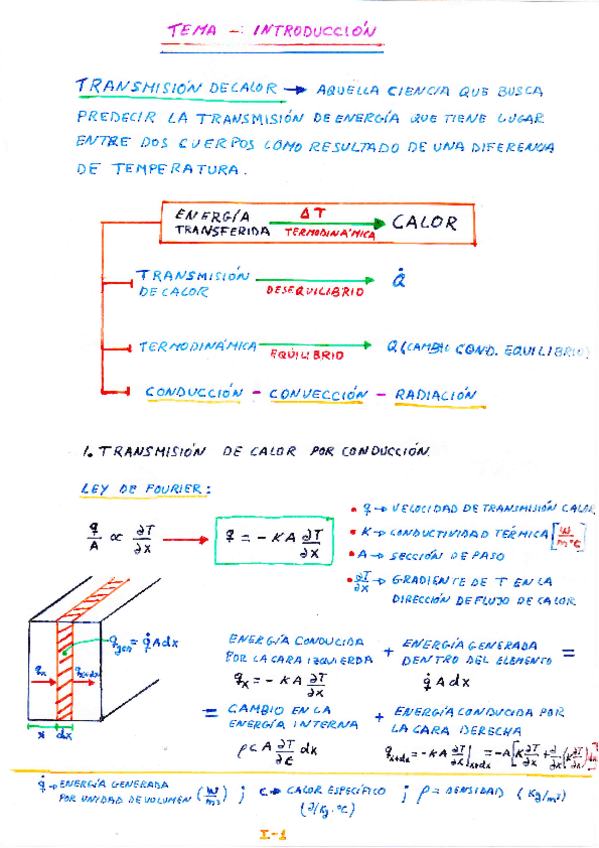 TEMA -: INTRODUCCIÓN
TRANSMISIÓN DE CALOR → AQUELLA CIENCIA QUE BUSCA
PREDECIR LA TRANSMISIÓN DE ENERGÍA QUE TIENE LUGAR
ENTRE DOS CUERPOS COMO RESULTADO DE UNA DIFERENCIA
DE TEMPERATURA.
ENERGÍA TRANSFERIDA ΔT TERMODINÁMICA → CALOR
TRANSMISIÓN DE CALOR DESEQUILIBRIO → Q̇
TERMODINÁMICA EQUILIBRIO → Q (CAMBIO COND. EQUILIBRIO)
CONDUCCIÓN - CONVECCIÓN - RADIACIÓN
1. TRANSMISIÓN DE CALOR POR CONDUCCIÓN.
LEY DE FOURIER:
q/A ∝ ∂T/∂x → q = - K A ∂T/∂x
• q → VELOCIDAD DE TRANSMISIÓN CALOR
• K → CONDUCTIVIDAD TÉRMICA [W/m·°C]
• A → SECCIÓN DE PASO
• ∂T/∂x → GRADIENTE DE T EN LA
DIRECCIÓN DE FLUJO DE CALOR
q gen = q̇ A dx
qx
qx+dx
x dx
ENERGÍA CONDUCIDA
POR LA CARA IZQUIERDA
qx = - K A ∂T/∂x
+ ENERGÍA GENERADA
DENTRO DEL ELEMENTO =
q̇ A dx
= CAMBIO EN LA
ENERGÍA INTERNA
ρ C A ∂T/∂t dx
+ ENERGÍA CONDUCIDA POR
LA CARA DERECHA
qx+dx = - K A ∂T/∂x]x+dx = -A[K ∂T/∂x + ∂/∂x (K ∂T/∂x) dx]
q̇ → ENERGÍA GENERADA
POR UNIDAD DE VOLUMEN (W/m³) ; C → CALOR ESPECÍFICO ; ρ = DENSIDAD (Kg/m³)
(J/Kg·°C)
I-1